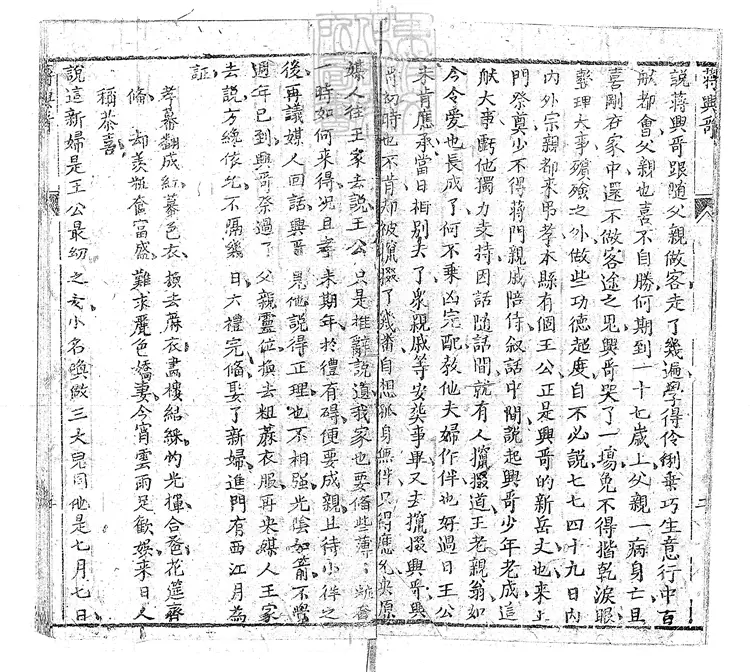 蔣興哥
說蔣興哥跟隨父親做客走了幾遍學得伶俐乖巧生意行中百
般都會父親也喜不自勝何期到一十七歲上父親一病身亡且
喜剛在家中還不做客途之鬼興哥哭了一塲免不得揩乾淚眼
整理大事殯殮之外做些功德超度自不必說七七四十九日內
內外宗親都來吊孝本縣有個王公正是興哥的新岳丈也來上
門祭奠少不得蔣門親戚陪侍叙話中間說起興哥少年老成這
般大事虧他獨力支持因話隨話間就有人攛掇道王老親翁如
今令愛也長成了何不乘凶完配教他夫婦作伴也好過日王公
未肯應承當日相別去了衆親戚等安塟事畢又去攛掇興哥興
哥初時也不肯却被攛掇了幾番自想孤身無伴只得應允央原
媒人往王家去說王公只是推辭說道我家也要俻些薄薄粧奩
一時如何來得况且孝未期年於禮有碍便要成親且待小祥之
後再議媒人回話興哥見他說得正理也不相強光陰如箭不覺
週年已到興哥祭過了父親靈位換去粗蔴衣服再央媒人王家
去說方纔依允不隔幾日六禮完俻娶了新婦進門有西江月為
証
孝幕翻成紅幕色衣換去蔴衣畫樓結綵灼光揮合卺花筵齊
俻却羨粧奩富盛難求麗色嬌妻今宵雲雨足歡娛來日人
稱恭喜
說這新婦是王公最幼之女小名喚做三大兒因他是七月七日